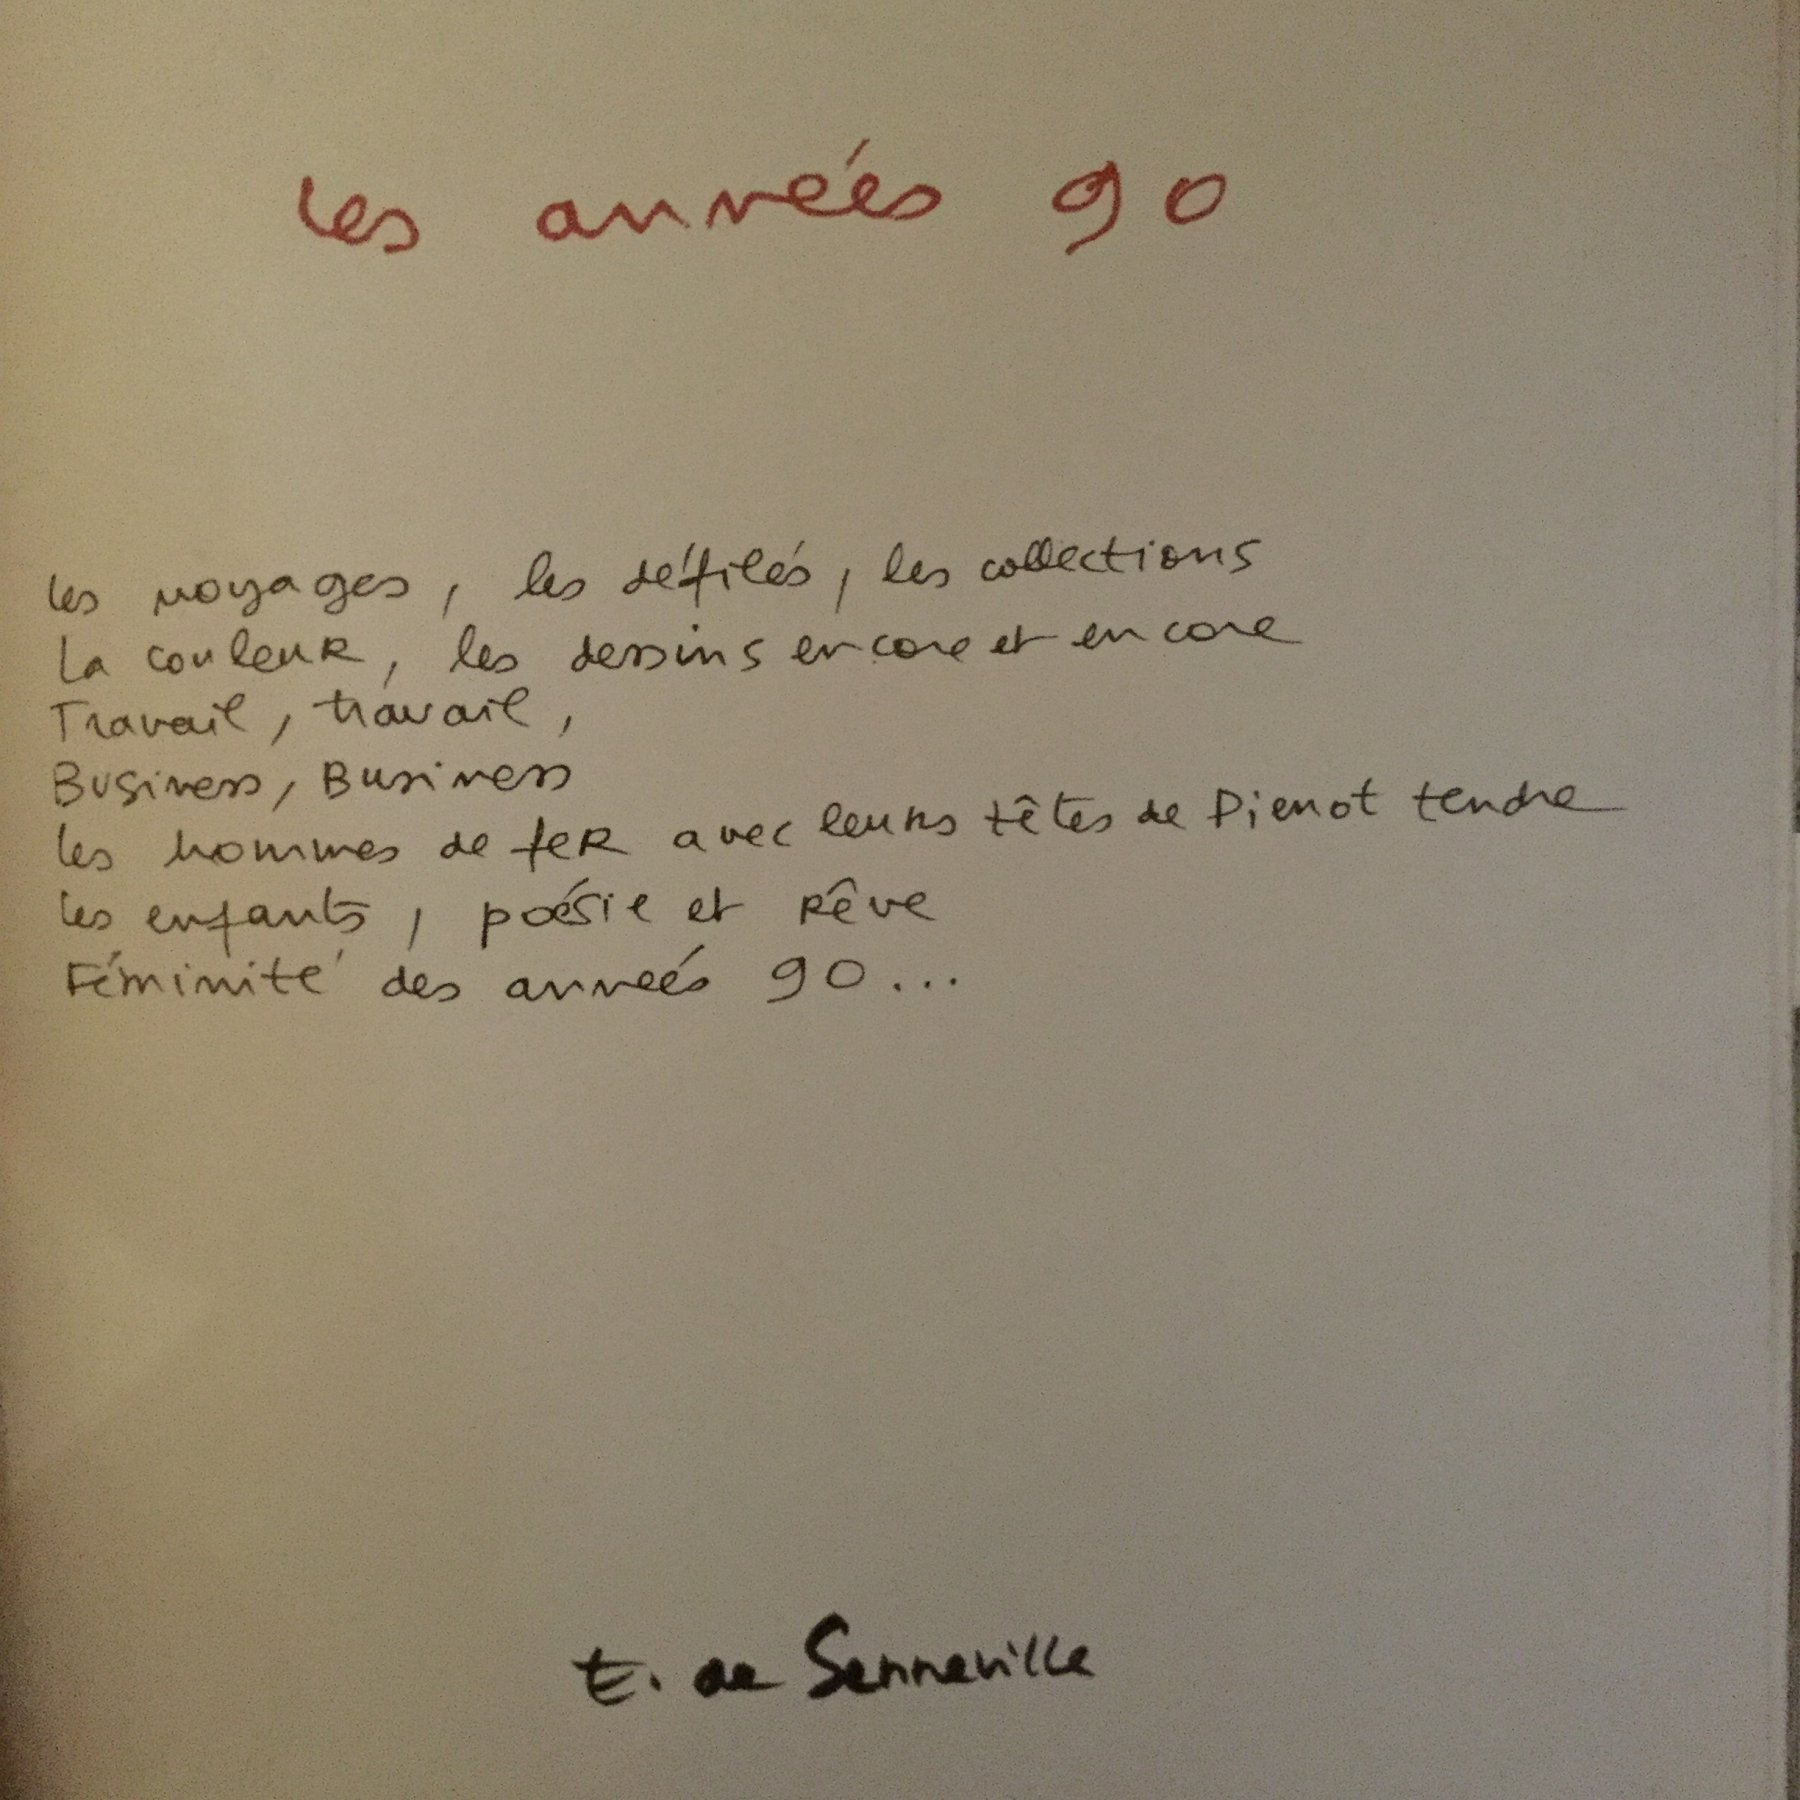 les années 90
les voyages, les défilés, les collections
La couleur, les dessins encore et encore
Travail, travail,
Business, Business
les hommes de fer avec leurs têtes de Pierrot tendre
les enfants, poésie et rêve
Féminité des années 90...
E. de Senneville